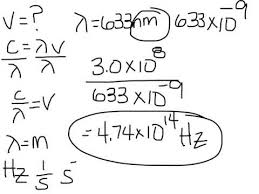 V=? λ=633nm 633x10⁻⁹
C/λ = λV/λ
3.0x10⁸/633x10⁻⁹
c/λ = V
=4.74x10¹⁴Hz
λ=m
Hz 1/S S⁻